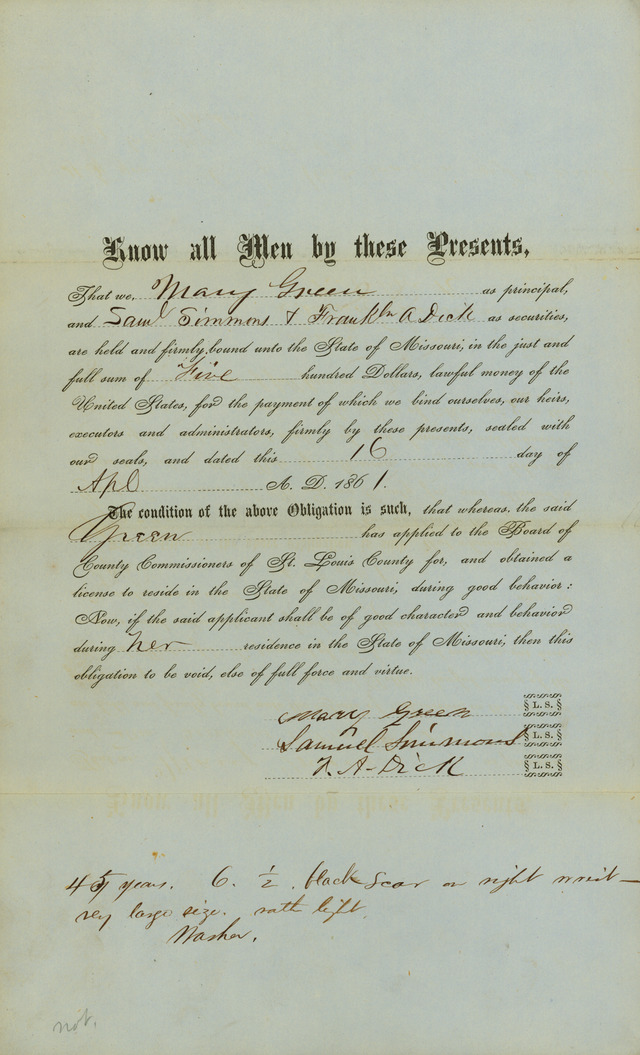 Know all Men by these Presents,
That we, Mary Green as principal,
and Saml Simmons & Frankln A Dick as securities,
are held and firmly bound unto the State of Missouri, in the just and
full sum of Five hundred Dollars, lawful money of the
United States, for the payment of which we bind ourselves, our heirs,
executors and administrators, firmly by these presents, sealed with
our seals, and dated this 16 day of
Apl A. D. 1861.
The condition of the above Obligation is such, that whereas, the said
Green has applied to the Board of
County Commissioners of St. Louis County for, and obtained a
license to reside in the State of Missouri, during good behavior:
Now, if the said applicant shall be of good character and behavior
during her residence in the State of Missouri, then this
obligation to be void, else of full force and virtue.
Mary Green L. S.
Samuel Simmons L. S.
F. A. Dick L. S.
45 years. 6. ½. black Scar on right wrist
very large size. left
Washer.
not.